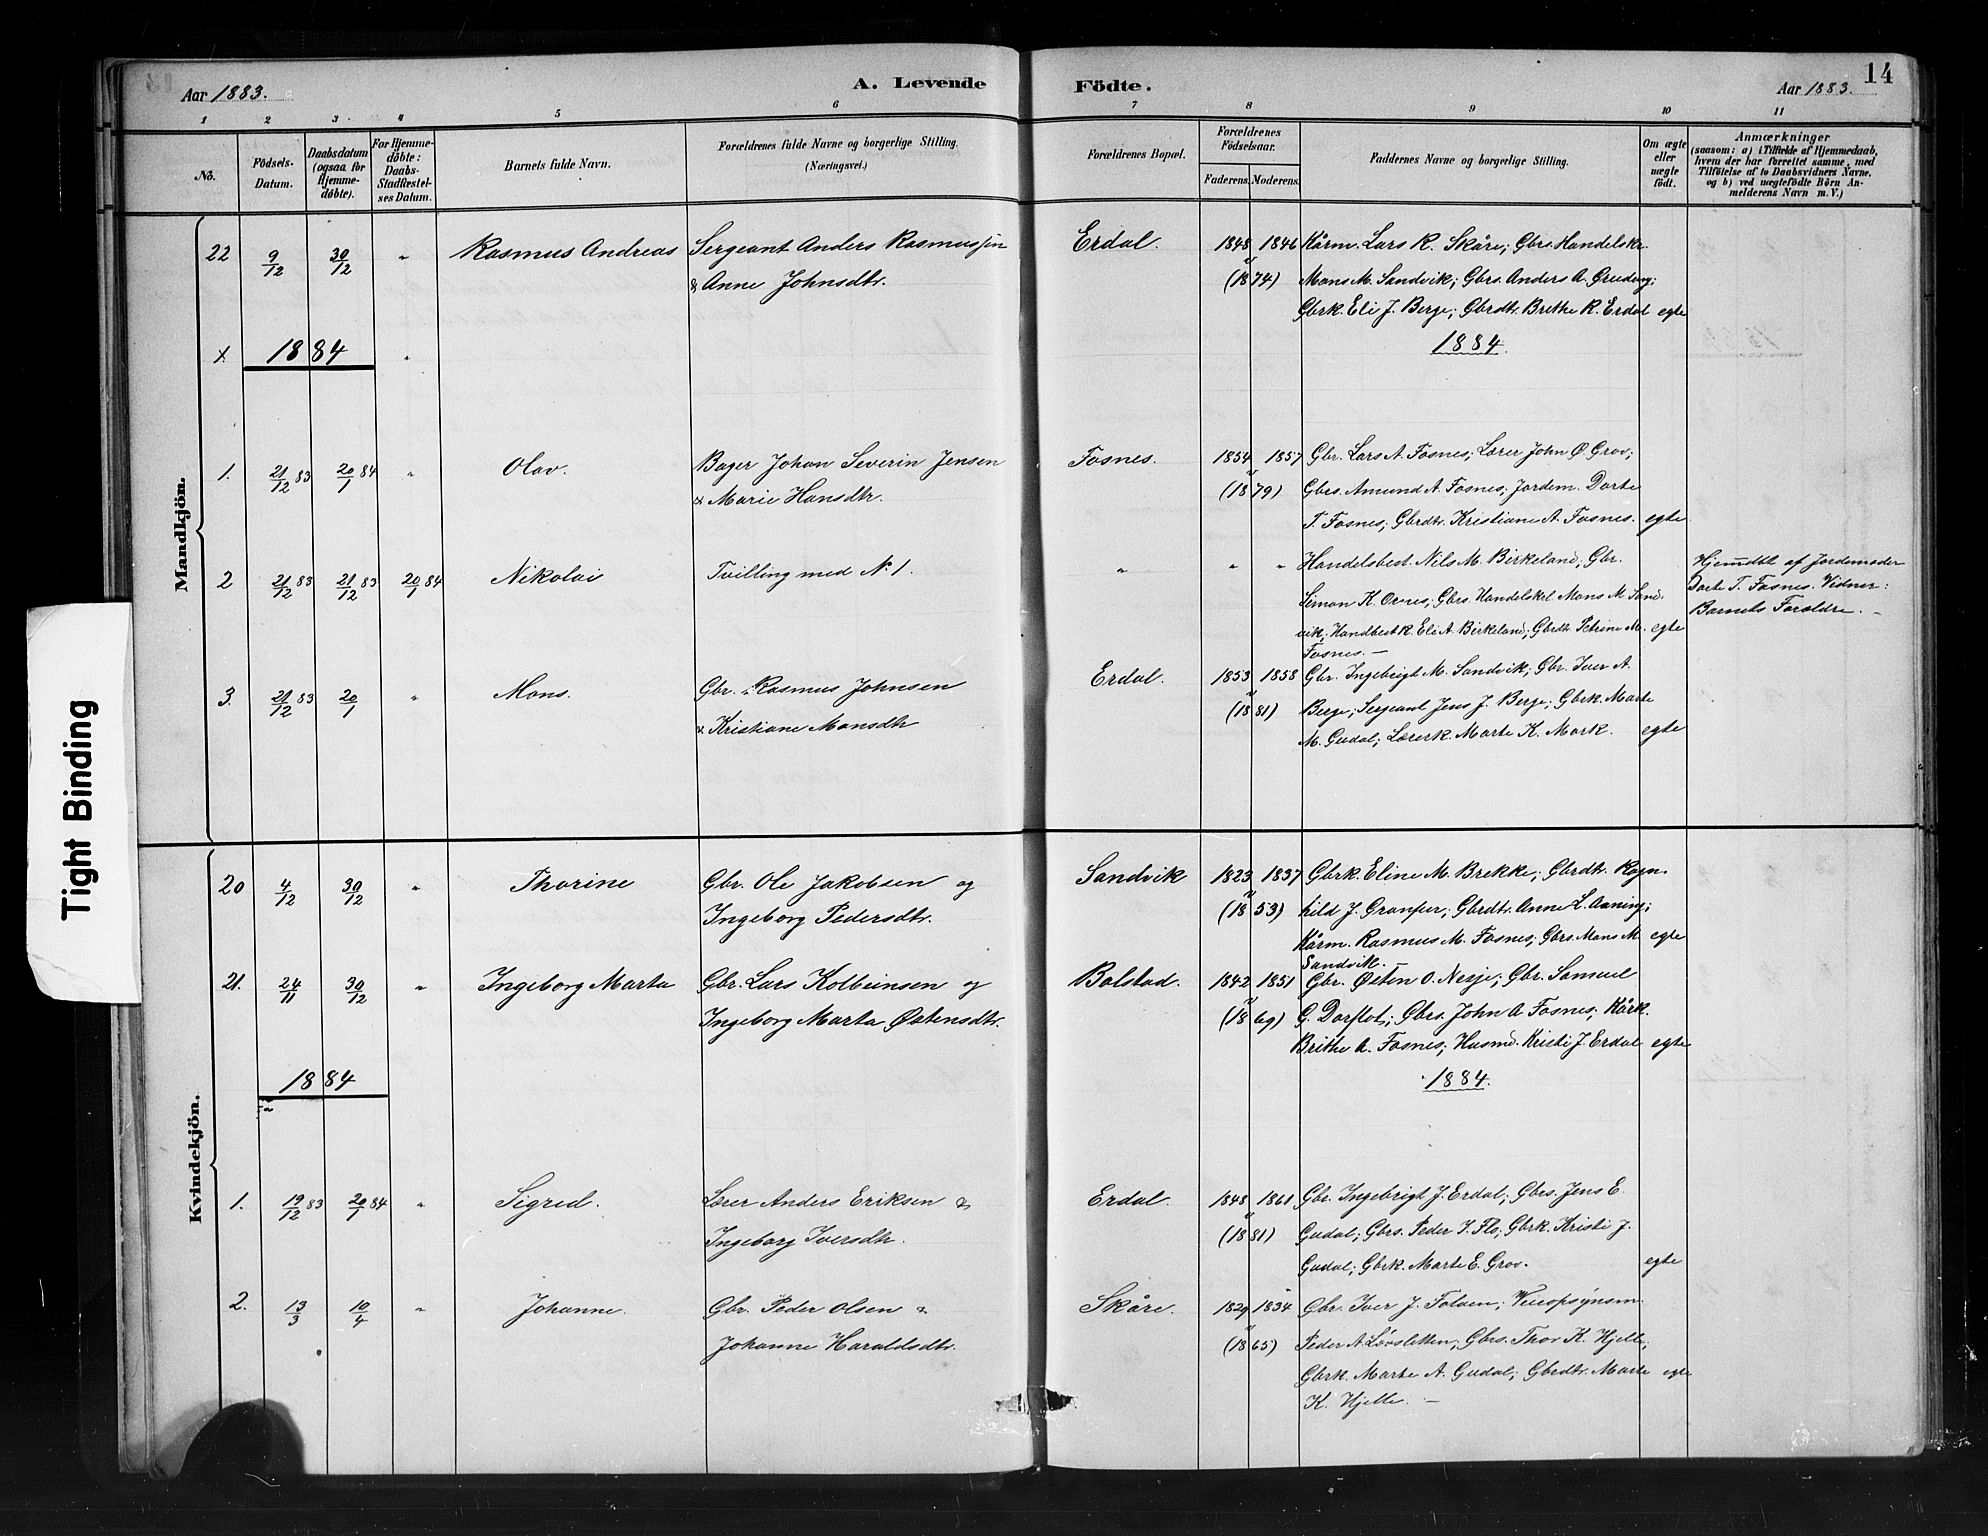 14
Aar 1883. A. Levende Födte. Aar 1883.
1 2 3 4 5 6 7 8 9 10 11
No.
Födsels-Datum.
Daabsdatum (ogsaa for Hjemme-döbte).
For Hjemme-döbte: Daabs-Stadfæstel-ses Datum.
Barnets fulde Navn.
Forældrenes fulde Navne og borgerlige Stilling.
(Næringsvei.)
Forældrenes Bopæl.
Forældrenes Födselsaar.
Faderens. Moderens.
Faddernes Navne og borgerlige Stilling.
Om ægte eller uægte födt.
Anmærkninger
(saasom: a) i Tilfælde af Hjemmedaab,
hvem der har forrettet samme, med
Tilföielse af to Daabsvidners Navne,
og b) ved uægtefödte Börn An-
melderens Navn m.V.)
Mandkjön.
22 9/12 30/12 " Rasmus Andreas Sergeant Anders Rasmussen Erdal. 1848 1846 Kårm. Lars R. Skåre; Gbrs. Handelskr.
& Anne Johnsdtr. (1874) Mons M. Sandvik; Gbrs. Anders A.
Gbrk. Eli J. Berge; Gbrdtr. Brithe R. Erdal egte
x 1884 " 1884.
1. 21/12 83 20/1 84 " Olav. Bager Johan Severin Jensen Fosnes. 1854 1857 Gbr. Lars A. Fosnes; Lærer John O. Grov;
& Marie Hansdtr. (1879) Gbrs. Amund A. Fosnes; Jordem. Dorte
T. Fosnes; Gbrdtr. Kristiane A. Fosnes. egte
2 21/12 83 21/12 83 20/1 84 Nikolai Tvilling med N. 1. " " " Handelsbest. Nils M. Birkeland; Gbr. Hjemdbt af Jordemoder
Simon K. Ornes; Gbrs. Handelskrl. Mons M. Sand- Dorte T. Fosnes. Vidner:
vik; Handbestk. Eli A. Birkeland; Gbrdtr. Petrine M. egte Barnets Forældre. -
Fosnes. -
3. 21/12 83 20/1 " Mons. Gbr. Rasmus Johnsen Erdal. 1853 1858 Gbr. Ingebrigt M. Sandvik; Gbr. Iver A.
& Kristiane Monsdtr (1881) Berge; Sergeant Jens J. Berge; Gbrk. Marte
M. Gudal; Lærerk. Marte K. Mark. egte
Kvindekjön.
20 4/12 30/12 " Thorine Gbr. Ole Jakobsen og Sandvik 1823 1837 Gbrk. Eline M. Brekke; Gbrdtr. Ragn-
Ingeborg Pedersdtr. (1853) hild J. Gronfur; Gbrdtr. Anne L. Aaning;
Kårm. Rasmus M. Fosnes; Gbrs. Mons M. egte
Sandvik. -
21. 24/11 30/12 " Ingeborg Marta Gbr. Lars Kolbeinsen og Bolstad. 1842 1851 Gbr. Østen O. Nesje; Gbr. Samuel
Ingeborg Marta Østensdtr. (1869) G. Dorflot; Gbrs. John A Fosnes; Kårk.
Brithe A. Fosnes; Husmd. Kristi J. Erdal egte
1884 1884.
1. 19/12 83 20/1 84 " Sigred. Lærer Anders Eriksen & Erdal. 1848 1861 Gbr. Ingebrigt J. Erdal; Gbrs. Jens E.
Ingeborg Iversdtr. (1881) Gudal; Gbrs. Peder I. Flo; Gbrk. Kristi J.
Gudal; Gbrk. Marte E. Grov. egte
2. 13/3 10/4 " Johanne. Gbr. Peder Olsen & Skåre. 1829 1834 Gbr. Iver J. Folven; Veiopsynsm.
Johanne Haraldsdtr. (1865) Peder A. Løvsletten; Gbrs. Thor K. Hjelle;
Gbrk. Marte A. Gudal; Gbrdtr. Marte egte
K. Hjelle. -
Tight Binding